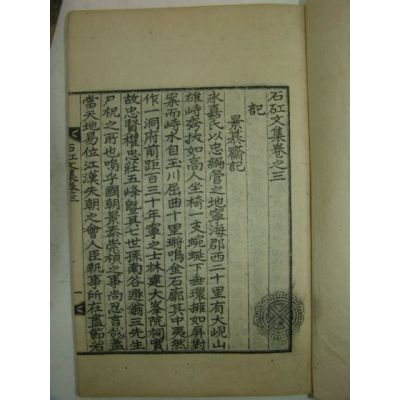 石矼文集卷之三
記
景慕齋記
永嘉氏以忠編管之地寧海郡西二十里有大峴山
雄峙秀拔如高人坐椅一支蜿蜒下垂環擁如屛對
案而峙水自玉川屈曲十里鏘鳴金石廓其中夷然
作一洞府前距百三十年寧之士林建大峯院祠實
故忠賢權忠莊五峰曁其七世孫南谷遯翁三先生
尸祝之所也嗚乎國朝景泰崇禎之事尚忍言哉蓋
當天地易位江漢失朝之會人臣執事所在盡節若
石矼文集卷三
一